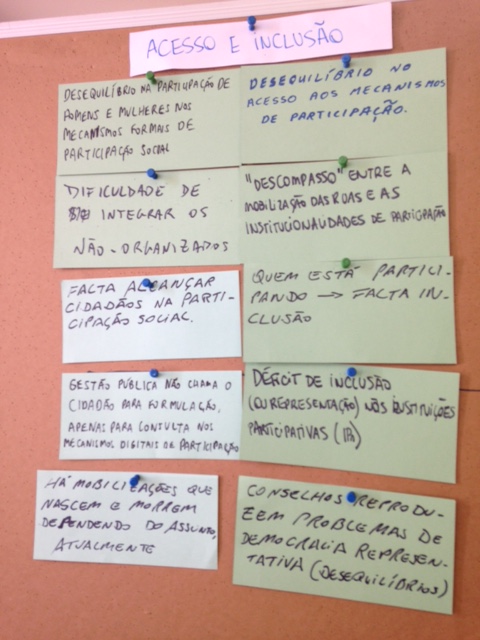 ACESSO E INCLUSÃO
DESEQUILÍBRIO NA PARTICIPAÇÃO DE
HOMENS E MULHERES NOS
MECANISMOS FORMAIS DE
PARTICIPAÇÃO SOCIAL
DESEQUILÍBRIO NO
ACESSO AOS MECANISMOS
DE PARTICIPAÇÃO.
DIFICULDADE DE
INTEGRAR OS
NÃO-ORGANIZADOS
"DESCOMPASSO" ENTRE A
MOBILIZAÇÃO DAS RUAS E AS
INSTITUCIONALIDADES DE PARTICIPAÇÃO
FALTA ALCANÇAR
CIDADÃOS NA PARTI-
CIPAÇÃO SOCIAL.
QUEM ESTÁ PARTICI-
PANDO → FALTA IN-
CLUSÃO
GESTÃO PÚBLICA NÃO CHAMA O
CIDADÃO PARA FORMULAÇÃO,
APENAS PARA CONSULTA NOS
MECANISMOS DIGITAIS DE PARTICIPAÇÃO
DÉFICIT DE INCLUSÃO
(OU REPRESENTAÇÃO) NAS INSTITUIÇÕES
PARTICIPATIVAS
HÁ MOBILIZAÇÕES QUE
NASCEM E MORREM
DEPENDENDO DO ASSUNTO,
ATUALMENTE
CONSELHOS REPRODU-
ZEM PROBLEMAS DE
DEMOCRACIA REPRESEN-
TATIVA (DESEQUILÍBRIOS)